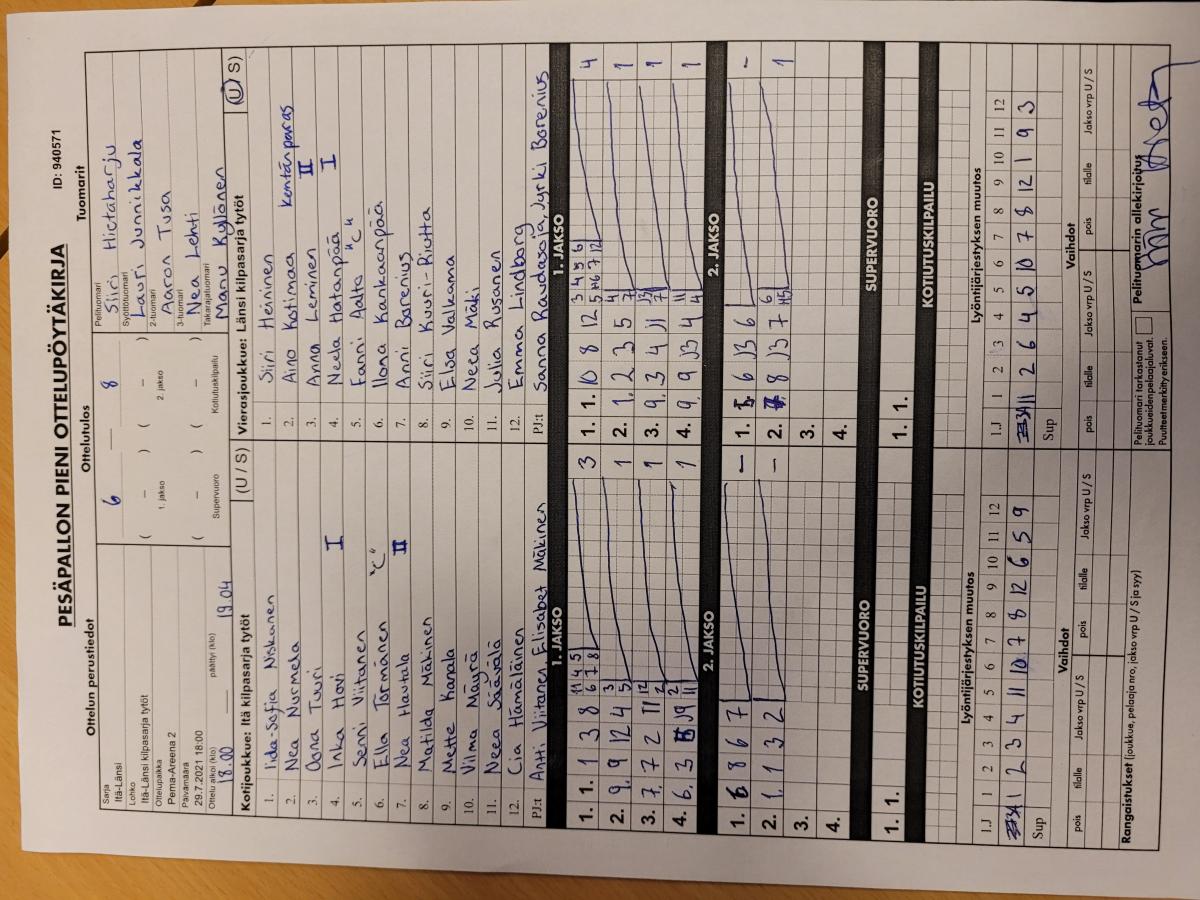 PESÄPALLON PIENI OTTELUPÖYTÄKIRJA
ID: 940571
Ottelun perustiedot
Ottelutulos
Tuomarit
Sarja
Itä-Länsi
Lohko
Itä-Länsi kilpasarja tytöt
Ottelupaikka
Pema-Areena 2
Päivämäärä
29.7.2021 18:00
Ottelu alkoi (klo)
päättyi (klo)
18.00
19.04
6 — 8
( – ) ( – )
1. jakso
2. jakso
( – ) ( – )
Supervuoro
Kotiutuskilpailu
Pelituomari
Siiri Hietaharju
Syöttötuomari
Lauri Junnikkala
2-tuomari
Aaron Tusa
3-tuomari
Nea Lehti
Takarajatuomari
Manu Kyllönen
Kotijoukkue: Itä kilpasarja tytöt
(U / S)
1. Iida-Sofia Niskanen
2. Nea Nurmela
3. Oona Tuuri
4. Inka Hovi I
5. Senni Viitanen
6. Ella Törmänen "C"
7. Nea Hautala II
8. Matilda Mäkinen
9. Mette Kanala
10. Vilma Mäyrä
11. Neea Säävälä
12. Cia Hämäläinen
PJ:t Antti Viitanen Elisabet Mäkinen
Vierasjoukkue: Länsi kilpasarja tytöt
(U / S)
1. Siiri Henninen
2. Aino Kotimaa kentänparas
3. Anna Leminen II
4. Neela Hatanpää I
5. Fanni Aalto "C"
6. Ilona Kankaanpää
7. Anni Barenius
8. Siiri Kuuri-Riutta
9. Elsa Valkama
10. Nea Mäki
11. Julia Rusanen
12. Emma Lindborg
PJ:t Sanna Raudasoja, Jyrki Barenius
1. JAKSO
1. JAKSO
1. 1. 1 3 8
11 4 5
6 7 8
3
2. 9. 9 12 4
3
5
1
3. 7. 7 2 11
12
2
1
4. 6. 3
2
11
1
1. 1. 10 8 12
3 4 5 6
4
2. 1. 2 3 5
4
7
1
3. 9. 3 4 11
7
1
4. 9. 9 13 4
11
4
1
2. JAKSO
2. JAKSO
1. 8 6 7 –
2. 1. 1 3 2 –
3.
4.
1. 6 13 6 -
2. 8 13 7
6
1
3.
4.
SUPERVUORO
SUPERVUORO
1. 1.
1. 1.
KOTIUTUSKILPAILU
KOTIUTUSKILPAILU
Lyöntijärjestyksen muutos
1.J 1 2 3 4 5 6 7 8 9 10 11 12
1 2 3 4 11 10 7 8 12 6 5 9
Sup
Lyöntijärjestyksen muutos
1.J 1 2 3 4 5 6 7 8 9 10 11 12
11 2 6 4 5 10 7 8 12 1 9 3
Sup
Vaihdot
pois tilalle Jakso vrp U / S pois tilalle Jakso vrp U / S
Vaihdot
pois tilalle Jakso vrp U / S pois tilalle Jakso vrp U / S
Rangaistukset (joukkue, pelaaja nro, jakso vrp U / S ja syy)
Pelituomari tarkastanut
joukkueiden pelaajaluvat.
Puutteet merkitty erikseen.
Pelituomarin allekirjoitus